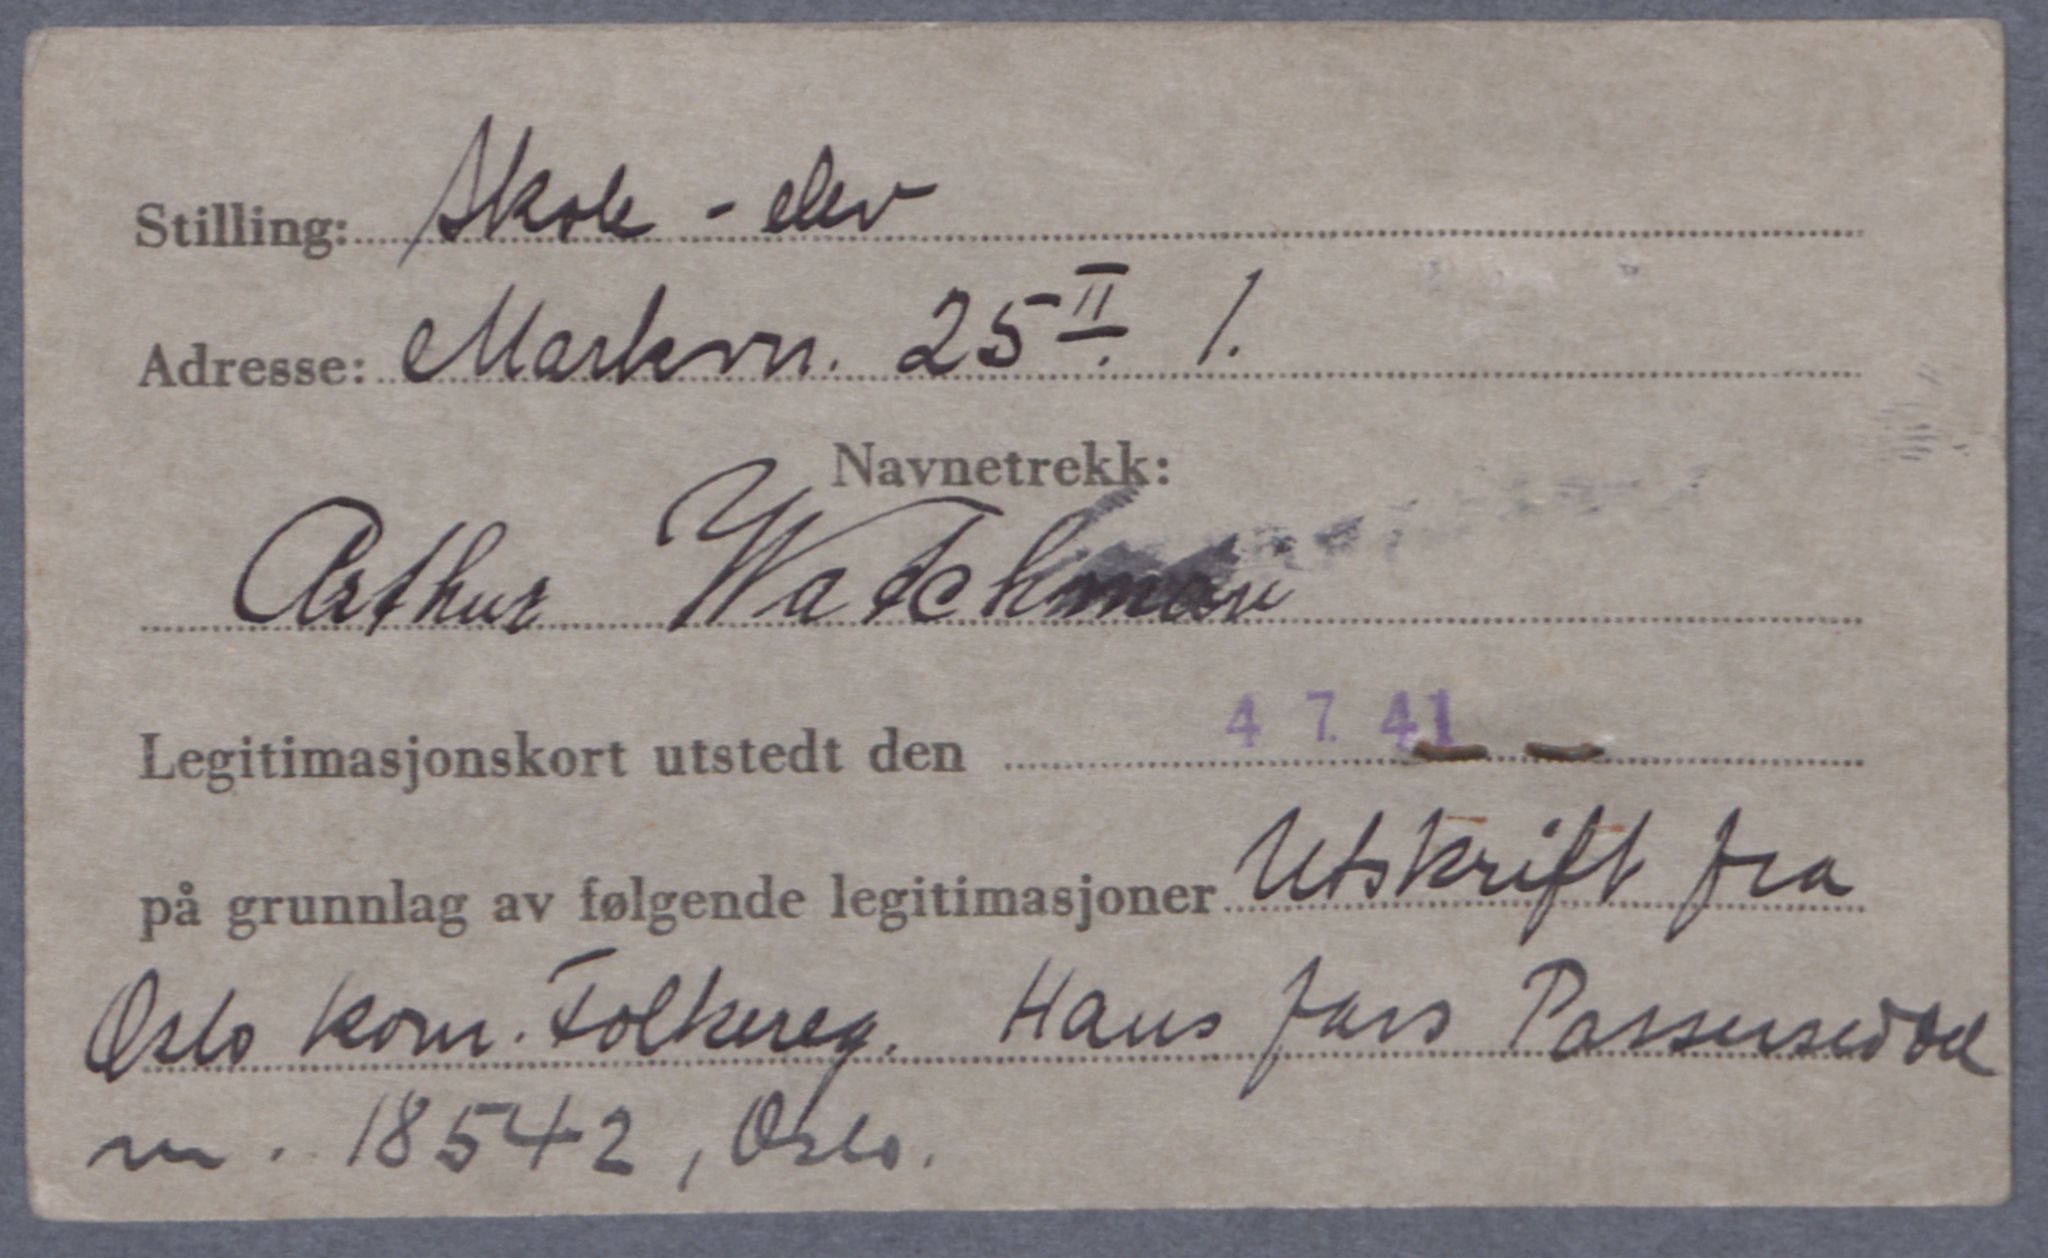 Stilling: Skole - elev
Adresse: Markvn. 25 II. 1.
Navnetrekk:
Arthur Watchman
Legitimasjonskort utstedt den 4 7. 41
på grunnlag av følgende legitimasjoner Utskrift fra
Oslo kom. Folkereg. Hans fars Passerseddel
nr. 18542, Oslo.